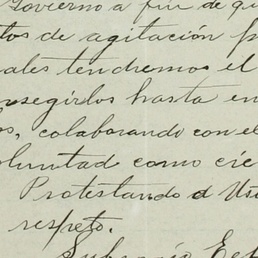 Govierno a fin de qu
tos de agitación p
uales tendremos el
nsegirlos hasta en
os, colaborando con el
oluntad como cie
Protestando a Us
respeto.